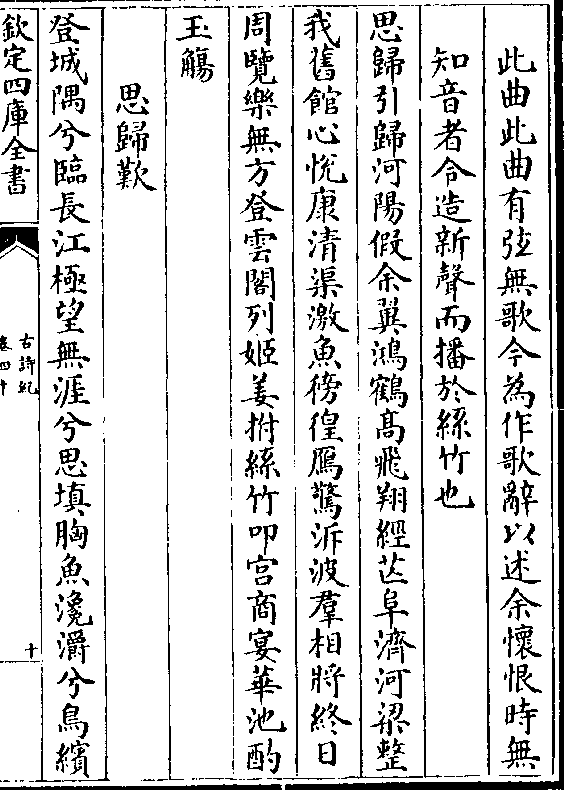 此曲此曲有弦無歌今為作歌辭以述余懷恨時無
知音者令造新聲而播於絲竹也
思歸引歸河陽假余翼鴻鶴髙飛翔經芒阜濟河梁整
我舊館心悅康清渠激魚徬徨鴈驚泝波羣相將終日
周覽樂無方登雲閣列姬姜拊絲竹叩宫商宴華池酌
玉觴
思歸歎
登城隅兮臨長江極望無涯兮思填胸魚瀺灂兮鳥繽
欽定四庫全書
古詩紀
卷四十
十